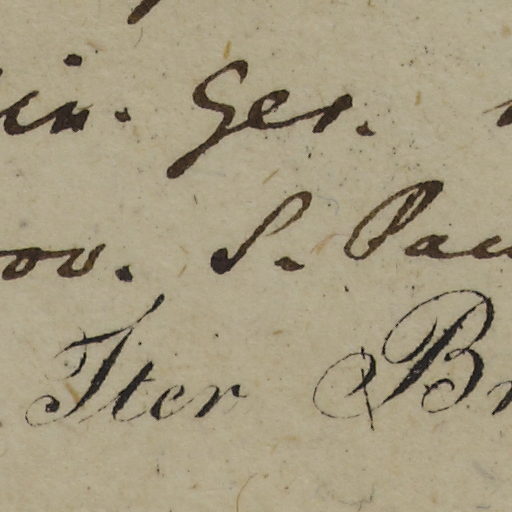 in. Ger.
ov. S. Pau
Iter Br